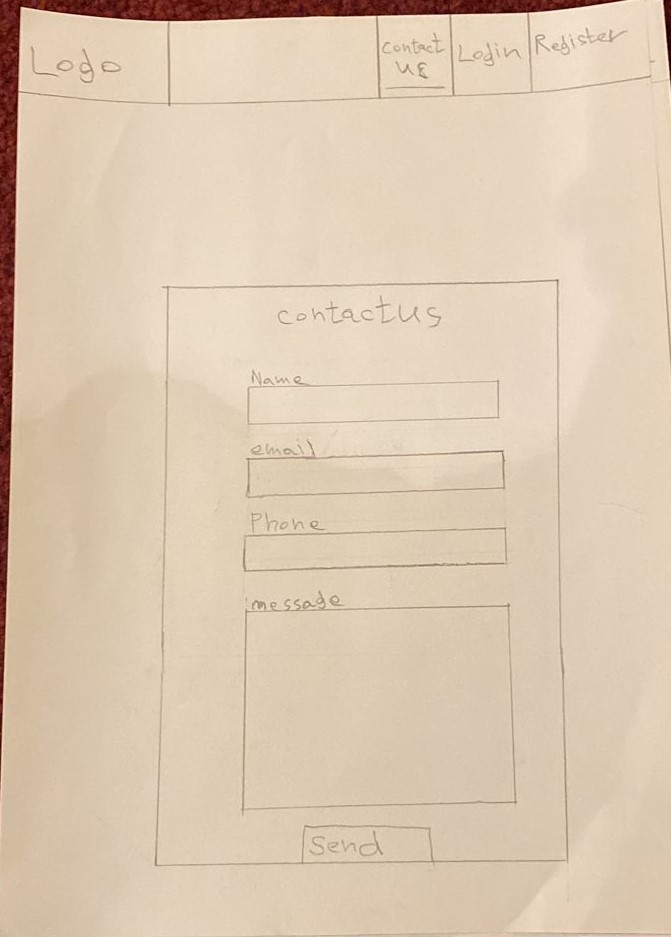 Logo
contact
us
Login
Register
contactus
Name
email
Phone
message
Send